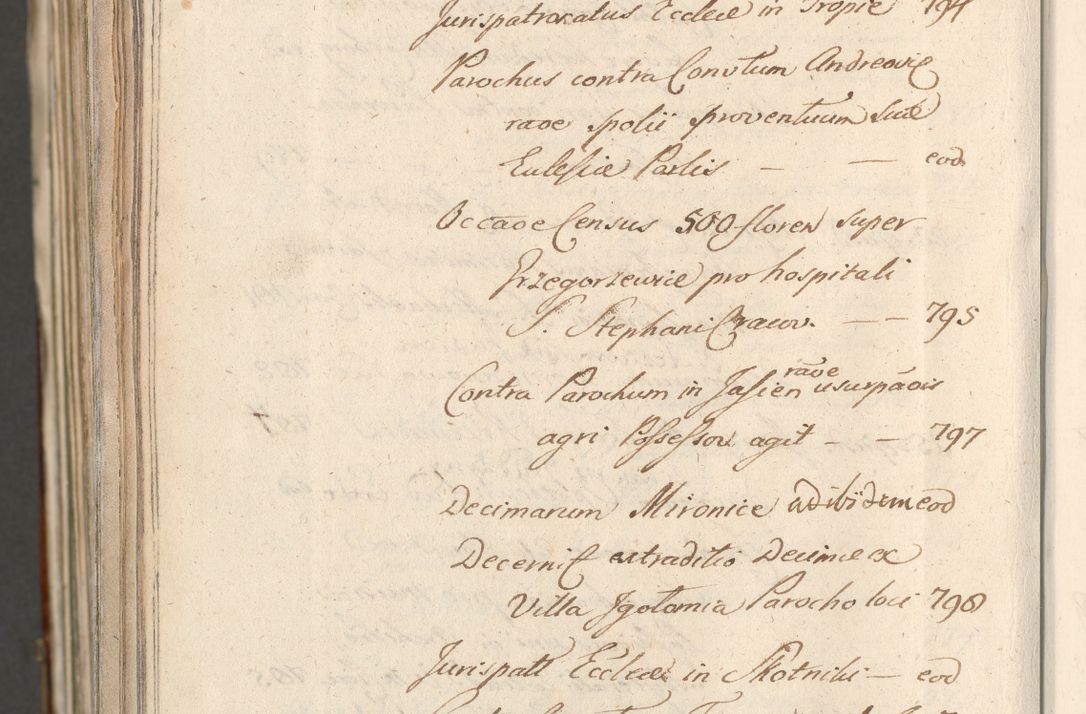 Jurispatronatus Eccleæ in Tropie 794
Parochus contra Convtum Andreovie
raõe spolii proventuum suæ
Ecclesiæ Partis — — eod
Occãoe Census 500 floren super
Grzegorzewice pro hospitali
S. Stephani Cracov. — — 795
Contra Parochum in Jasien raõe usurpãois
agri Possessor agit — — 797
Decimarum Mironice ad ibidem eod
Decernit extraditio Decimæ ex
Villa Igolomia Parocho loci 798
Jurispatt Eccleæ in Skotniki — eod